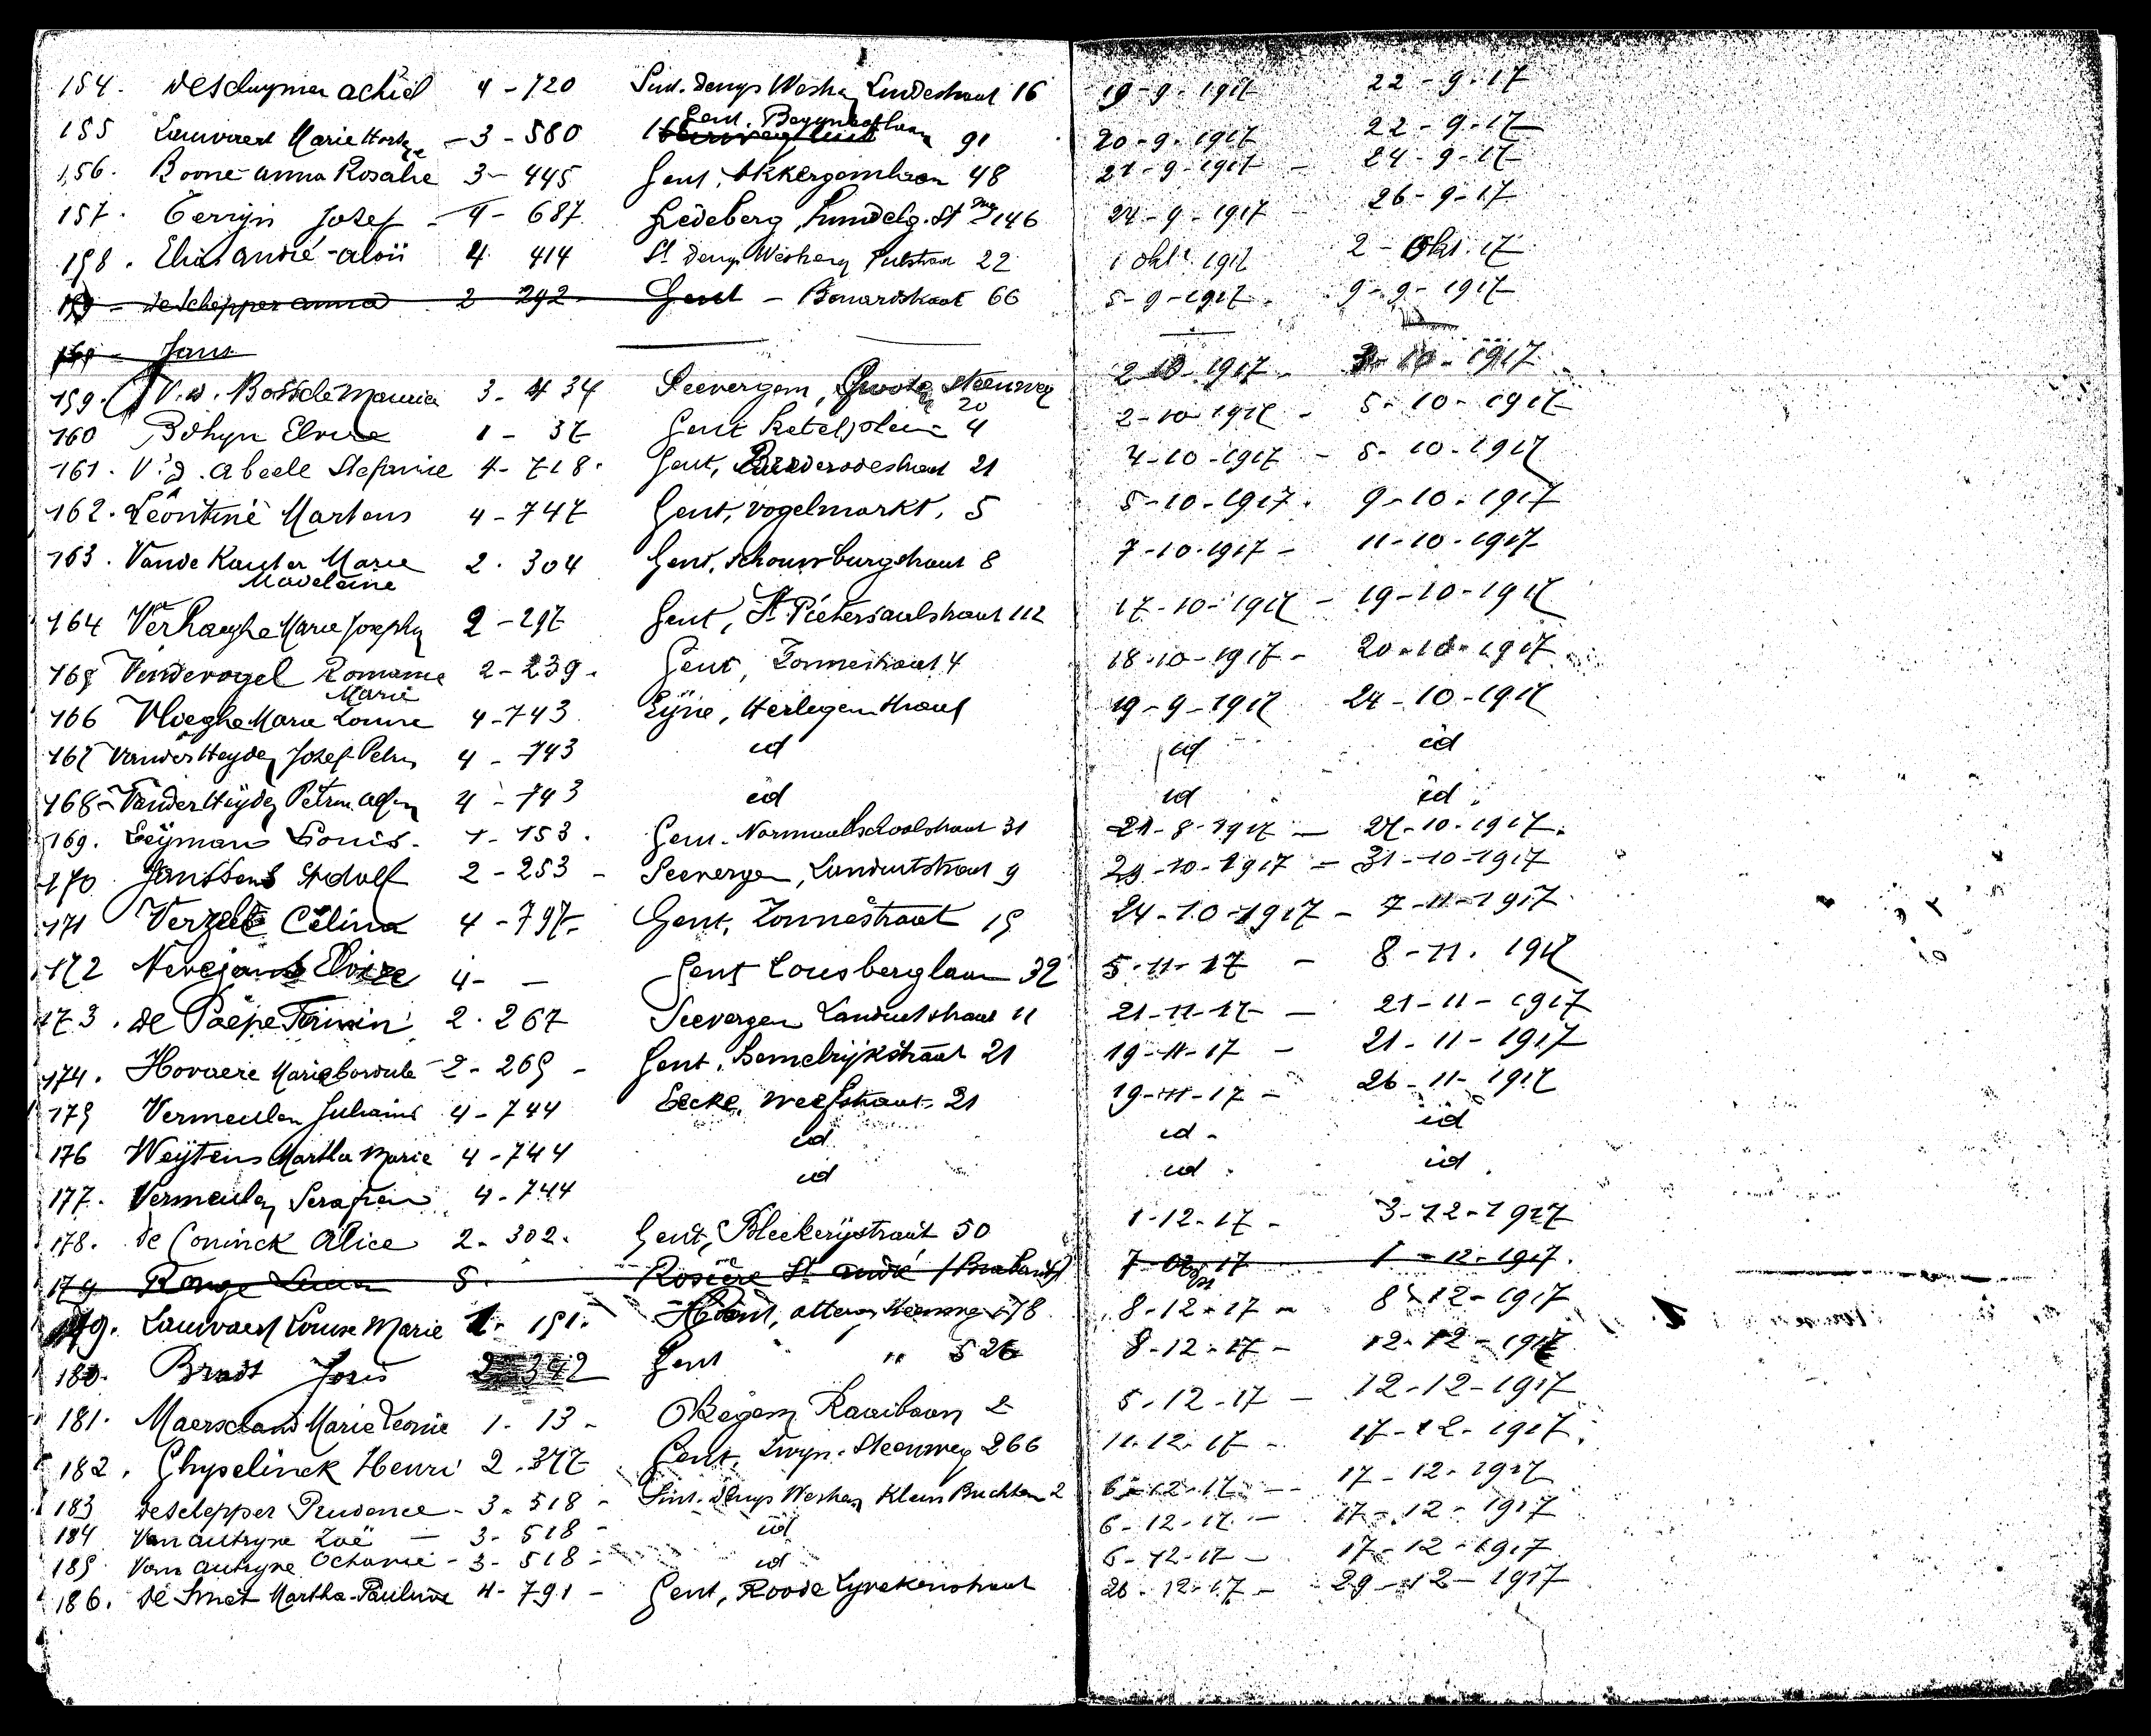 154. deschuymer achiel 4 - 720 Sint. denys Westre Lindestraat 16 19-9-1917 22-9-17
155 Lauwaert Marie - 3 - 580 Gent. Begynhoflaan 91 20-9-1917 22-9-17
156. Boone anna Rosalie 3 - 445 Gent, Akkergemlaan 48 21-9-1917 - 24-9-17
157. Jozef - 4 - 687 Ledeberg, 146 24-9-1917 26-9-17
158. Elias André-aloïs 4 414 St denys Westrem 22 1 okt 1917 2 - Okt. 17
159 - de schepper anna 2 292 Gent - 66 5-9-1917. 9-9-1917
160 - Jans
159. V.d. Bossche Maurice 3. 434 Seevergem, Groote steenweg 20 2-10-1917 - 3-10-1917
160 Bohyn Elvire 1 - 37 Gent Ketelplein 4 2-10-1917 - 5-10-1917
161. V.d. abeele Stefanie 4-718. Gent, Brederodestraat 21 4-10-1917 - 5-10-1917
162. Léontine Martens 4-747 Gent, vogelmarkt, 5 5-10-1917. 9-10-1917
163. Vande Kauter Marie Madeleine 2. 304 Gent, schouwburgstraat 8 7-10-1917 - 11-10-1917
164 Verhaeghe Marie Josephe 2-297 Gent, St Pietersaalstraat 112 17-10-1917 - 19-10-1917
165 Vindevogel Romanie Marie 2-239. Gent, Zonnestraat 4 18-10-1917 - 20-10-1917
166 Vlieghe Marie Louise 4-743 Eyne, Heirlegemstraat 19-9-1917 24-10-1917
167 Vander Heyden Jozef Petrus 4 - 743 id id id
168 - Vander Heyden Petrus 4 - 743 id id id
169. Leÿman Louis. 1-153. Gent. Normaalschoolstraat 31 21-8-1917 - 27-10-1917.
170 Janssens Adolf 2 - 253 - Seevergem, Landuitstraat 9 29-10-1917 - 31-10-1917
171 Verzele Celina 4-797- Gent, Zonnestraat 15 24-10-1917 - 7-11-1917
172 Nevejans Elvire 4- - Gent Lousberglaan 32 5-11-17 - 8-11. 1917
173. de Paepe Firmin 2. 267 Seevergem Landuitstraat 11 21-11-17 - 21-11-1917
174. Hovaere Marie 2-265 - Gent, Hemelrijkstraat 21 19-11-17 - 21-11-1917
175 Vermeulen 4-744 Eecke, weefstraat 21 19-11-17 - 26-11-1917
176 Weÿtens Martha Marie 4-744 id id - id
177. Vermeulen Serafien 4-744 id id id
178. de Coninck Alice 2-302. Gent, Bleekerijstraat 50 1-12-17 - 3-12-1917
179 5. Rosière St andré (Brabant) 7-12-17 1-12-1917.
179. Lauwaert Louise Marie 1-151. 178 8-12-17 - 8-12-1917
180. Bradt Joris 2-342 Gent " " 526 8-12-17 - 12-12-1917
181. Marie Leonie 1-13 - Okegem Kaaibaan 2 5-12-17 - 12-12-1917
182. Ghyselinck Henri 2.377 Gent, Zwyn. Steenweg 266 11-12-17 - 17-12-1917.
183 de schepper Prudence - 3. 518 - Sint. denys Westrem Klein Buchten 2 6-12-17 - 17-12-1917
184 Van autryve Zoë - 3. 518 - id 6-12-17 - 17-12-1917
185 Van autryve Octavie - 3. 518 - id 6-12-17 - 17-12-1917
186. de Smet Martha-Pauline 4-791 - Gent, Roode Lyvekenstraat 26-12-17 - 29-12-1917